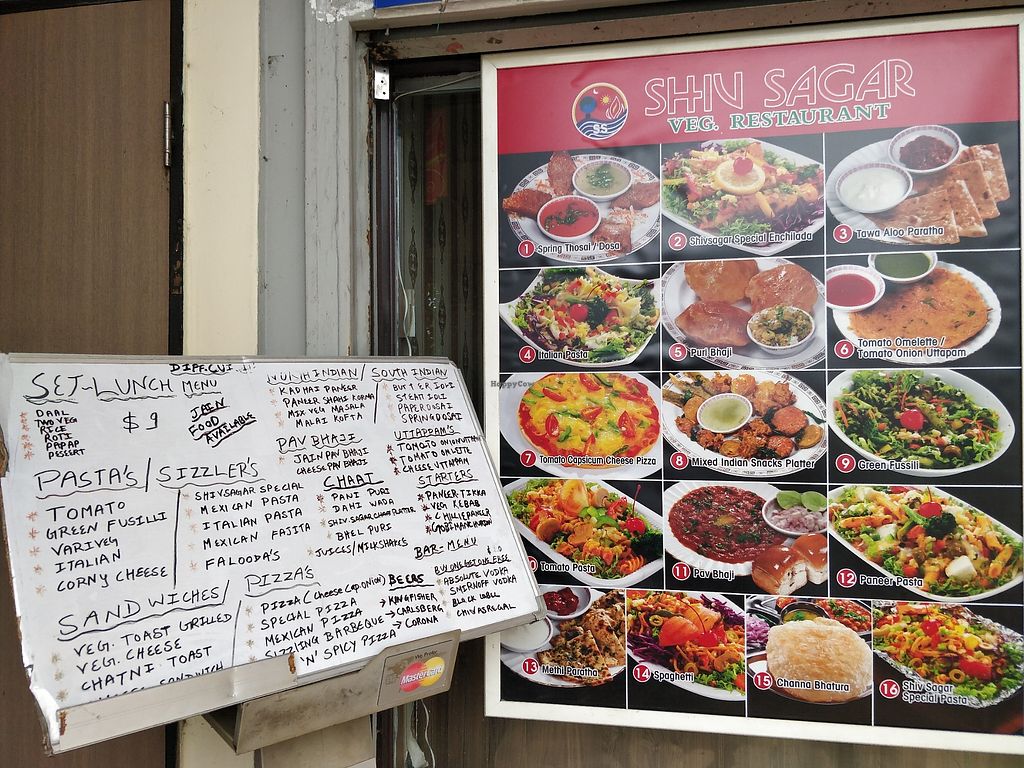 SHIV SAGAR
VEG. RESTAURANT
SS
1 Spring Thosai / Dosa
2 Shivsagar Special Enchilada
3 Tawa Aloo Paratha
4 Italian Pasta
5 Puri Bhaji
6 Tomato Omelette /
Tomato Onion Uttapam
7 Tomato Capsicum Cheese Pizza
8 Mixed Indian Snacks Platter
9 Green Fussili
10 Tomato Pasta
11 Pav Bhaji
12 Paneer Pasta
13 Methi Paratha
14 Spaghetti
15 Channa Bhatura
16 Shiv Sagar
Special Pasta
HappyCow
SET-LUNCH MENU
DAAL
TWO VEG
RICE
ROTI
PAPAD
DESSERT
$9
JAIN
FOOD
AVAILABLE
NORTH INDIAN
KADHAI PANEER
PANEER SHAHI KORMA
MIX VEG MASALA
MALAI KOFTA
SOUTH INDIAN
BUTTER IDLI
STEAM IDLI
PAPER DOSAI
SPRING DOSAI
PAV BHAJI
JAIN PAV BHAJI
CHEESE PAV BHAJI
UTTAPPAM'S
TOMATO ONION UTTPAM
TOMATO OMLETTE
CHEESE UTTPAM
PASTA'S / SIZZLER'S
TOMATO
GREEN FUSILLI
VARIVEG
ITALIAN
CORNY CHEESE
SHIVSAGAR SPECIAL
MEXICAN PASTA
ITALIAN PASTA
MEXICAN FAJITA
FALOODA'S
CHAAT
PANI PURI
DAHI WADA
SHIV SAGAR CHAAT PLATTER
BHEL PURI
JUICES/MILKSHAKES
STARTERS
PANEER TIKKA
VEG KEBAB
CHILLI PANEER
GOBI MANCHURIAN
SANDWICHES /
VEG. TOAST GRILLED
VEG. CHEESE
CHATNI TOAST
SANDWICH
PIZZA'S
PIZZA (Cheese Cap, Onion)
SPECIAL PIZZA
MEXICAN PIZZA
SIZZLING BARBEQUE
'N' SPICY PIZZA
BEERS
KINGFISHER
CARLSBERG
CORONA
BAR-MENU
BUY ONE GET ONE FREE
ABSOLUTE VODKA
SMIRNOFF VODKA
BLACK LABEL
CHIVAS REGAL
We Prefer
MasterCard